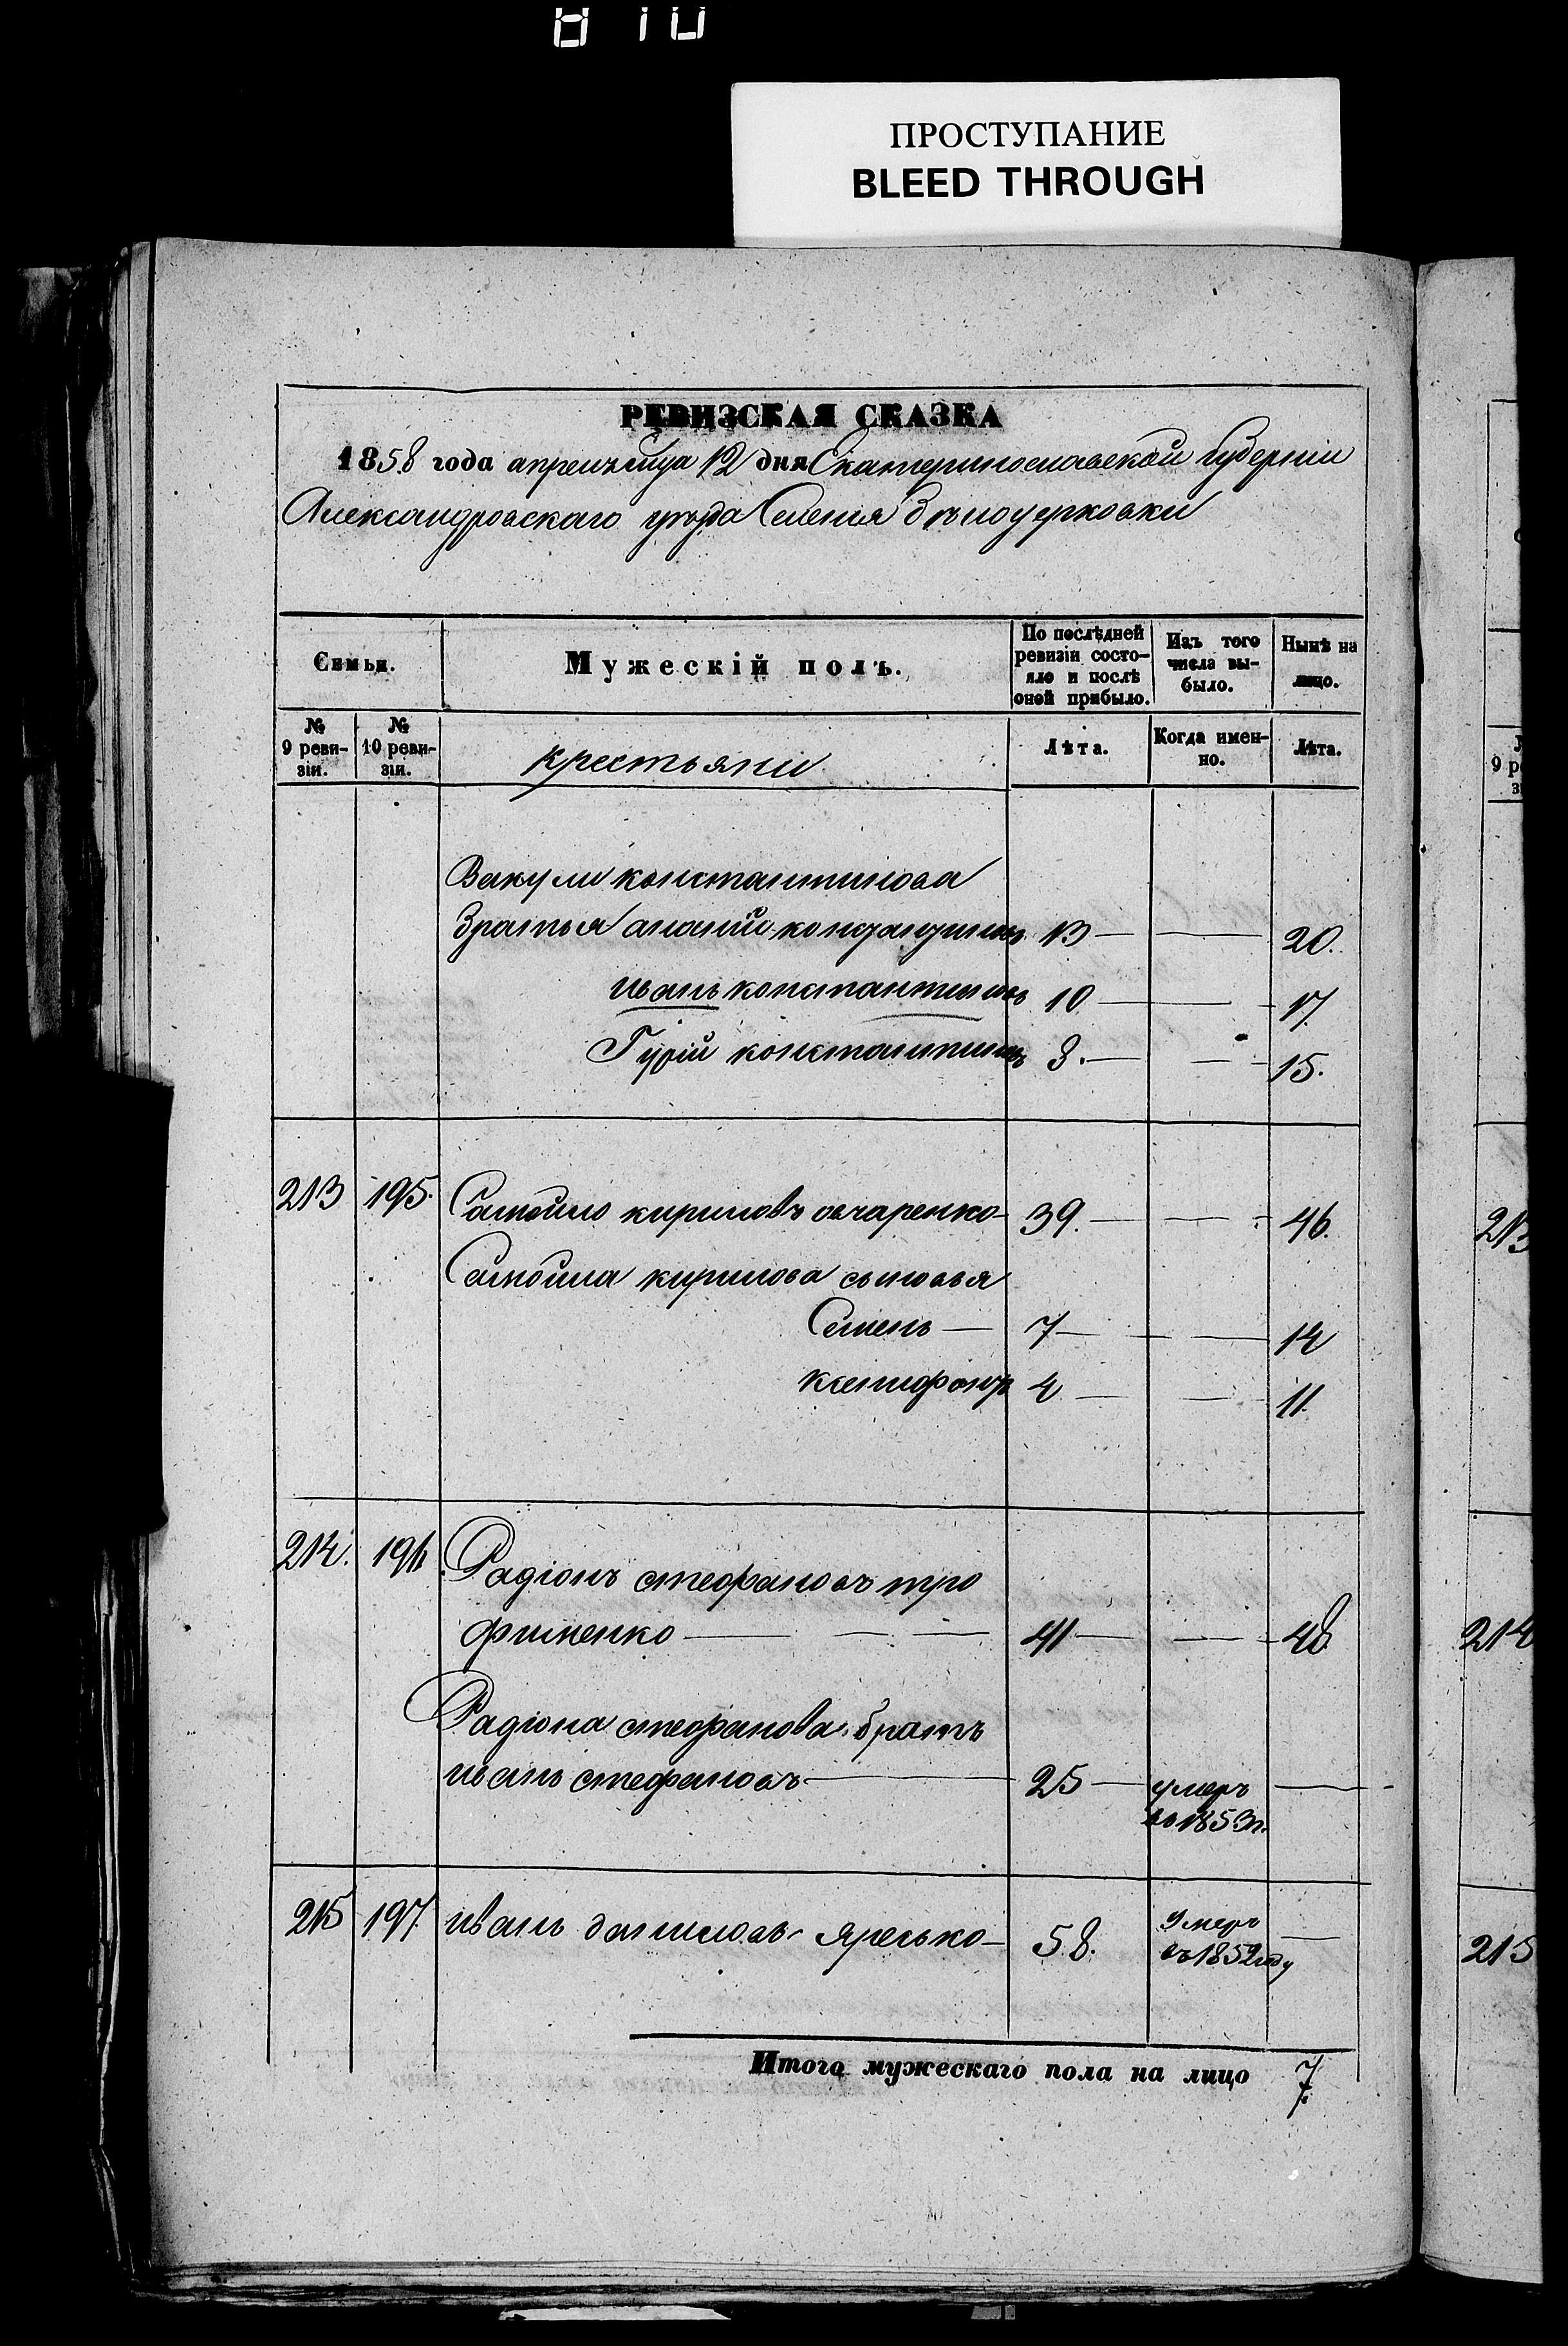 ПРОСТУПАНИЕ
BLEED THROUGH
РЕВИЗСКАЯ СКАЗКА
1858 года апреля мца 12 дня Екатеринославской Губерніи
Александровскаго уезда Селенія Белоцерковки
Семьи.
Мужескій полъ.
По послѣдней ревизіи состо-
яло и послѣ оной прибыло.
Изъ того числа вы-
было.
Нынѣ на лицо.
№ 9 реви-
зіи.
№ 10 реви-
зіи.
крестьяни
Лѣта.
Когда имен-
но.
Лѣта.
Вакули константинова
братья ананій константиновъ 13 — — 20.
иванъ константиновъ 10 — — 17.
Гурій константиновъ 8. — — 15.
213 195. Самойло кириловъ овчаренко 39. — — 46.
Самойла кирилова сыновья
Семенъ — 7 — — 14
ксенофонтъ 4 — — 11.
214. 196. Радіонъ стефановъ тро
фименко — 41 — — 48
Радіона стефанова братъ
иванъ стефановъ — 25 — умеръ —
въ 1853 г.
215 197. иванъ даниловъ яресько — 58. Умеръ —
въ 1852 году
Итого мужескаго пола на лицо 7.
9 ре
213
214
215